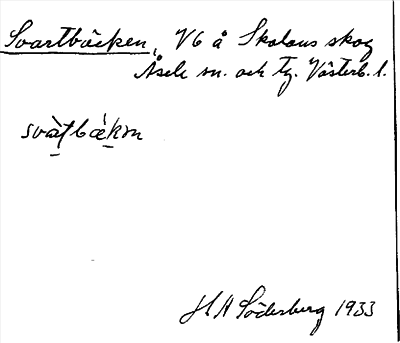 Svartbäcken, V6 å Skolans skog
Åsele sn. och tg. Västerb. l.
svàtbækm
H A Söderberg 1933